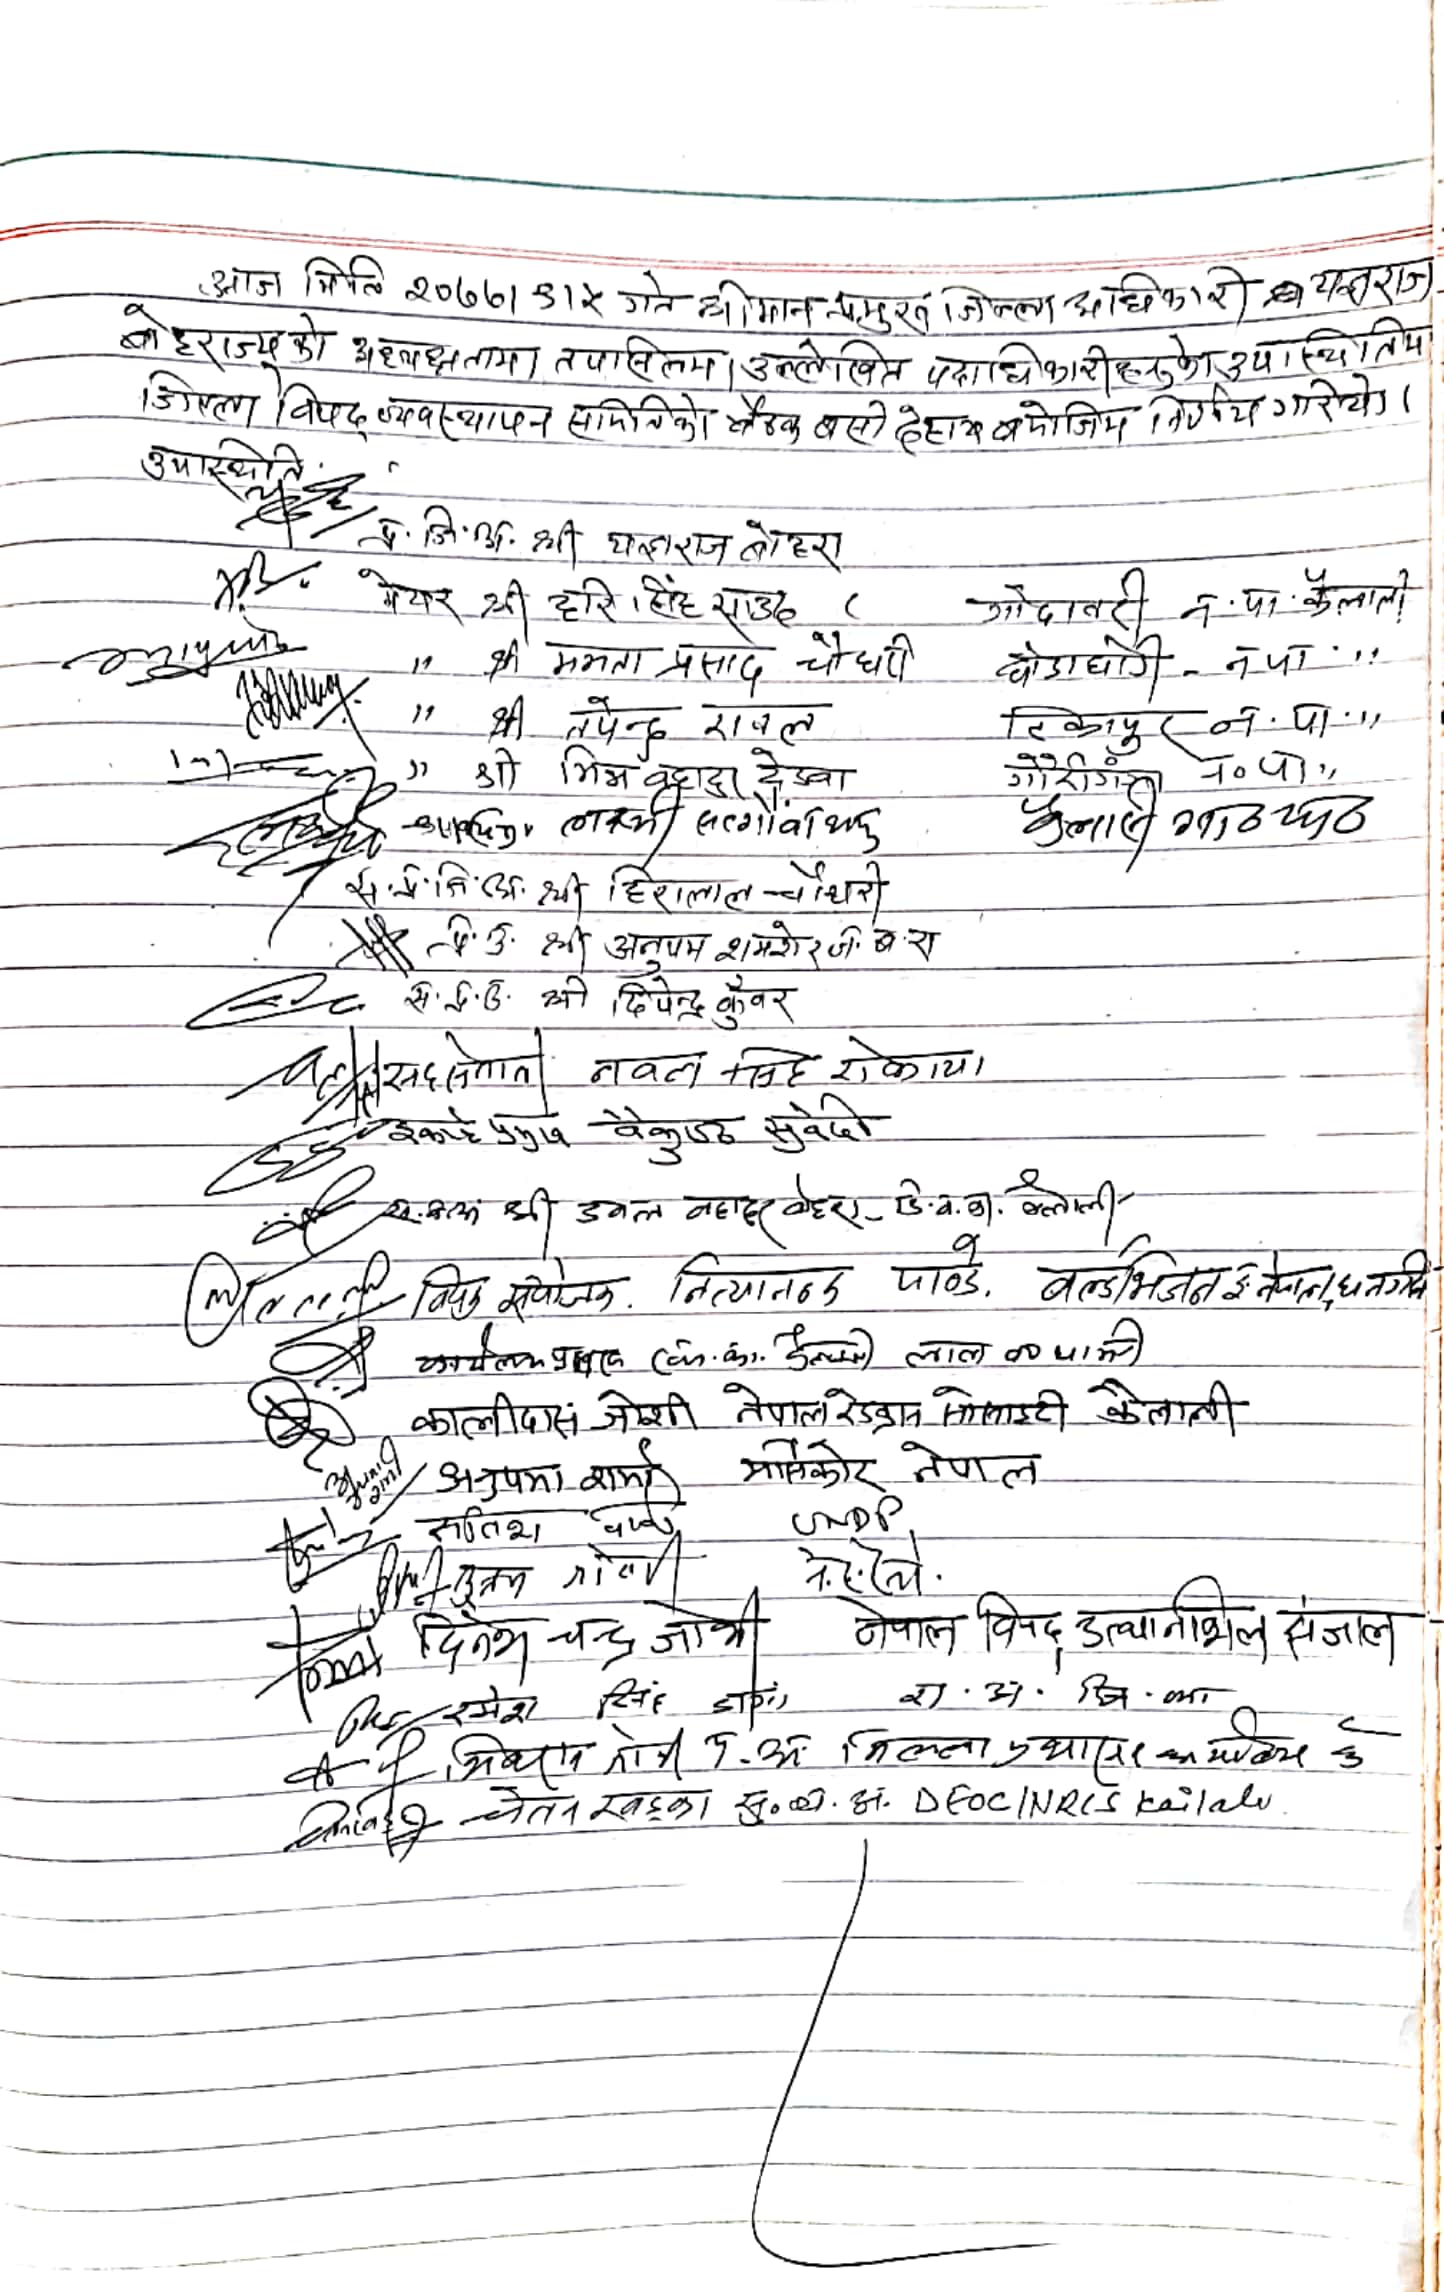 आज मिति २०७७। ३।२ गते श्रीमान प्रमुख जिल्ला अधिकारी यज्ञराज
बोहराज्यूको अध्यक्षतामा तपासिलमा उल्लेखित पदाधिकारीहरुको उपास्थितिमा
जिल्ला विपद् व्यवस्थापन समितिको बैठक बसी देहाय बमोजिम निर्णय गरियो।
उपास्थिति:
प्र. जि. अ. श्री यज्ञराज बोहरा
मेयर श्री हरि सिंह साउद गोदावरी न. पा. कैलाली
" श्री ममता प्रसाद चौधरी घोडाघोडी - न पा. "
" श्री तपेन्द्र रावल टिकापुर न. पा. "
" श्री भिम बहादुर देउवा गौरीगंगा न० पा "
लक्ष्मी सत्गौवा कैलारी गा
स. प्र. जि. अ. श्री हिरालाल चौधरी
प्र. उ. श्री अनुपम शमशेर ज. ब. रा
स. प्र. उ. श्री दिपेन्द्र कुँवर
नवल सिंह रोकाया
प्रमुख वैकुण्ठ सुवेदी
श्री डबल बहादुर बोहरा - कैलाली
संयोजक. नित्यानन्द पाण्डे. वर्ल्डभिजन ई नेपाल, धनगढी
लाल ब० धामी
कालीदास जोशी नेपाल रेडक्रस सोसाइटी कैलाली
अनुपमा शर्मा मर्सिकोर नेपाल
UNDP
दिनेश चन्द्र जोशी नेपाल विपद् उत्थानशिल संजाल
रमेश सिंह रा. अ. वि. का
जोशी प्र. अ. जिल्ला प्रशासन कार्यालय कै
चेतन खड्का सु. ब्य. अ. DEOC/NRCS Kailali